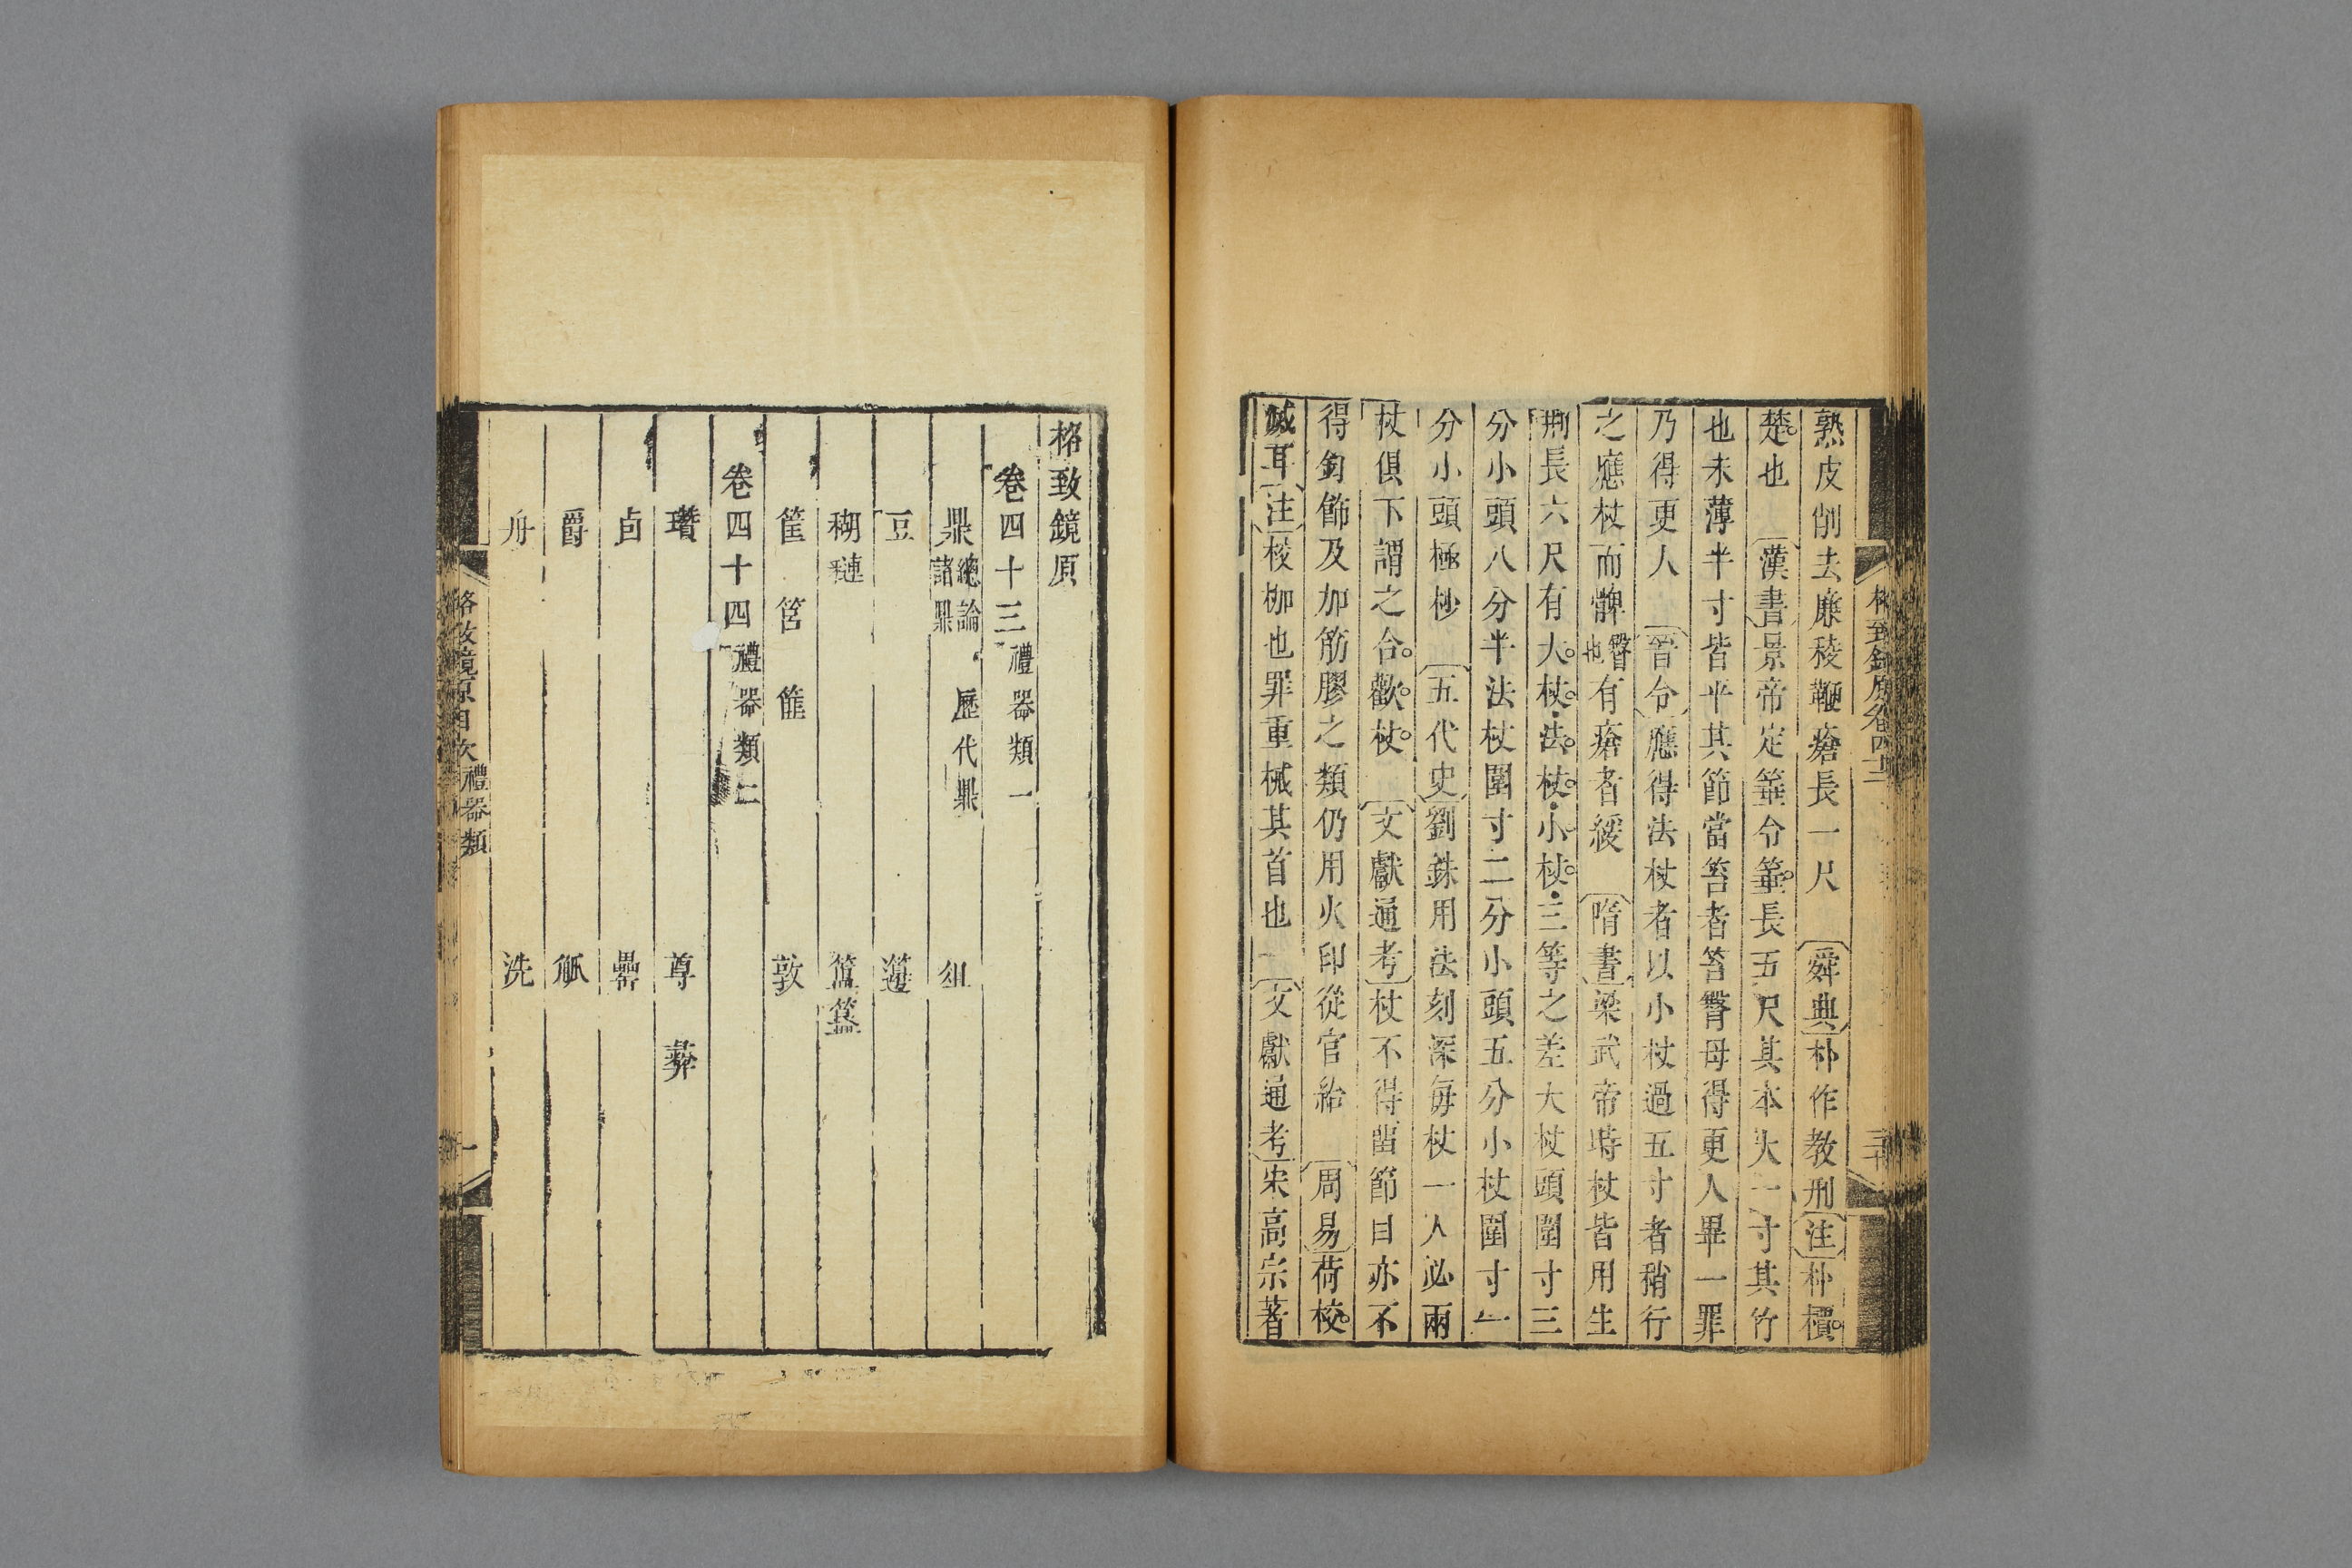 熟皮削去廉稜鞭瘡長一尺　舜典朴作教刑注朴檟
楚也　漢書景帝定箠令箠長五尺其本大一寸其竹
也末薄半寸皆平其節當笞者笞臀毋得更人畢一罪
乃得更人　晉令應得法杖者以小杖過五寸者稍行
之應杖而髀臀也有瘡者緩　隋書梁武帝時杖皆用生
荆長六尺有大杖法杖小杖三等之差大杖頭圍寸三
分小頭八分半法杖圍寸二分小頭五分小杖圍寸一
分小頭極杪　五代史劉銖用法刻深每杖一人必兩
杖俱下謂之合歡杖　文獻通考杖不得留節目亦不
得釘飾及加筋膠之類仍用火印從官給　周易荷校
滅耳注校枷也罪重械其首也　文獻通考宋高宗著
格致鏡原卷四十二
格致鏡原
卷四十三禮器類一
鼎總論諸鼎　歷代鼎　俎
豆　籩
瑚璉　簠簋
筐　筥　篚　敦
卷四十四禮器類二
瓚　尊　彝
卣　罍
爵　觚
舟　洗
格致鏡原目次禮器類　一